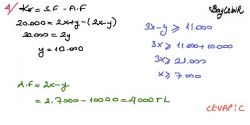 4/ Kar = S.F - A.F
20.000 = 2x+y-(2x-y)
20.000 = 2y
y = 10.000
3x-y ≥ 11.000
3x ≥ 11.000 + 10000
3x ≥ 21.000
x ≥ 7.000
A.F = 2x-y
= 2.7000 - 10000 = 4000 TL
CEVAP: C